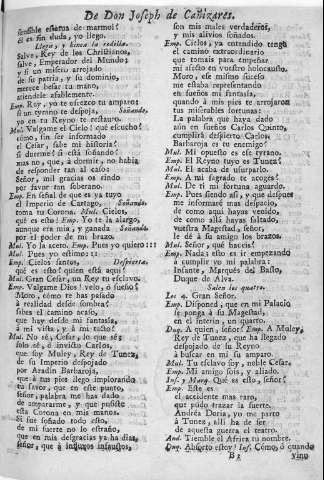 De Don Joseph de Cañizares.
sensible estatua de marmol!
él es sin duda, yo llego.
Llega, y hinca la rodilla.
Salve, Rey de los Christianos,
salve, Emperador del Mundo;
y si un misero arrojado
de su patria, y su dominio,
merece besar tu mano,
atiendele afablemente.
Emp. Rey, yo te ofrezco tu amparo:
si un tyrano te despoja, Soñando.
yo en tu Reyno te restauro.
Mul. Valgame el Cielo! qué escucho!
cómo, sin ser informado
el Cesar, sabe mi historia!
si duerme! si está soñando!
mas no, que, à dormir, no habia
de responder tan al caso:
Señor, mil gracias os rindo
por favor tan soberano.
Emp. En señal de que es ya tuyo
el Imperio de Cartago, Soñando.
toma tu Corona. Mul. Cielos,
qué es esto! Emp. Yo te la alargo,
aunque era mia, y ganada Soñando.
por el poder de mi brazo.
Mul. Yo la acepto. Emp. Pues yo quiero!!!
Mul. Pues yo estimo::::
Emp. Cielos santos, Despierta.
qué es esto! quien está aqui!
Mul. Gran Cesar, un Rey tu esclavo.
Emp. Valgame Dios! velo, ò sueño!
Moro, cómo te has pasado
à realidad desde sombra!
sabes el camino acaso,
que hay desde mi fantasía,
à mi vista, y à mi tacto!
Mul. No sé, Cesar, lo que sé;
solo sé, ó invicto Carlos,
que soy Muley, Rey de Tunez,
de su Imperio despojado
por Aradin Barbaroja,
que à tus pies llego implorando
tu favor, que en este punto,
señor, palabra me has dado
de ampararme, y que pusiste
esta Corona en mis manos.
Si fue soñado todo esto,
de mi suerte no lo estraño,
que en mis desgracias ya ha dias,
señor, que à influxos infaustos,
son mis males verdaderos,
y mis alivios soñados.
Emp. Cielos, ya entendido tengo
el camino extraordinario
que tomais para empeñar
mi afecto en vuestro holocausto.
Moro, ese mismo suceso
me estaba representando
en sueños mi fantasía,
quando à mis pies te arrojaron
tus miserables fortunas:
La palabra que haya dado
aun en sueños Carlos Quinto,
cumplirá despierto Carlos.
Barbaroja es tu enemigo!
Mul. Mi opuesto es ese tyrano.
Emp. El Reyno tuyo es Tunez!
Mul. El acaba de usurparlo.
Emp. A mi sagrado te acoges!
Mul. De ti mi fortuna aguardo.
Emp. Pues siendo asi, y que despues
me informaré mas despacio,
de como aqui hayas venido,
de como allá hayas faltado,
vuestra Magestad, señor,
le dé à su amigo los brazos.
Mul. Señor, qué haceis!
Emp. Nada: esto es ir empezando
à cumplir yo mi palabra:
Infante, Marqués del Basto,
Duque de Alva.
Salen los quatro.
Los 4. Gran Señor.
Emp. Disponed, que en mi Palacio
se ponga à su Magestad,
en el interin, un quarto.
Duq. A quien, señor! Emp. A Muley,
Rey de Tunez, que ha llegado
despojado de su Reyno
à buscar en mi su amparo.
Mul. Tu esclavo soy, noble Cesar.
Emp. Mi amigo sois, y aliado.
Inf. y Marq. Qué es esto, señor!
Emp. Este es
el accidente mas raro,
que pudo trazar la suerte.
Andrea Doria, yo me parto
à Tunez, allí ha de ser
de aquesta guerra el teatro.
And. Tiemble el Africa tu nombre.
Duq. Absorto estoy! Inf. Cómo, ò cuando
B3
vino